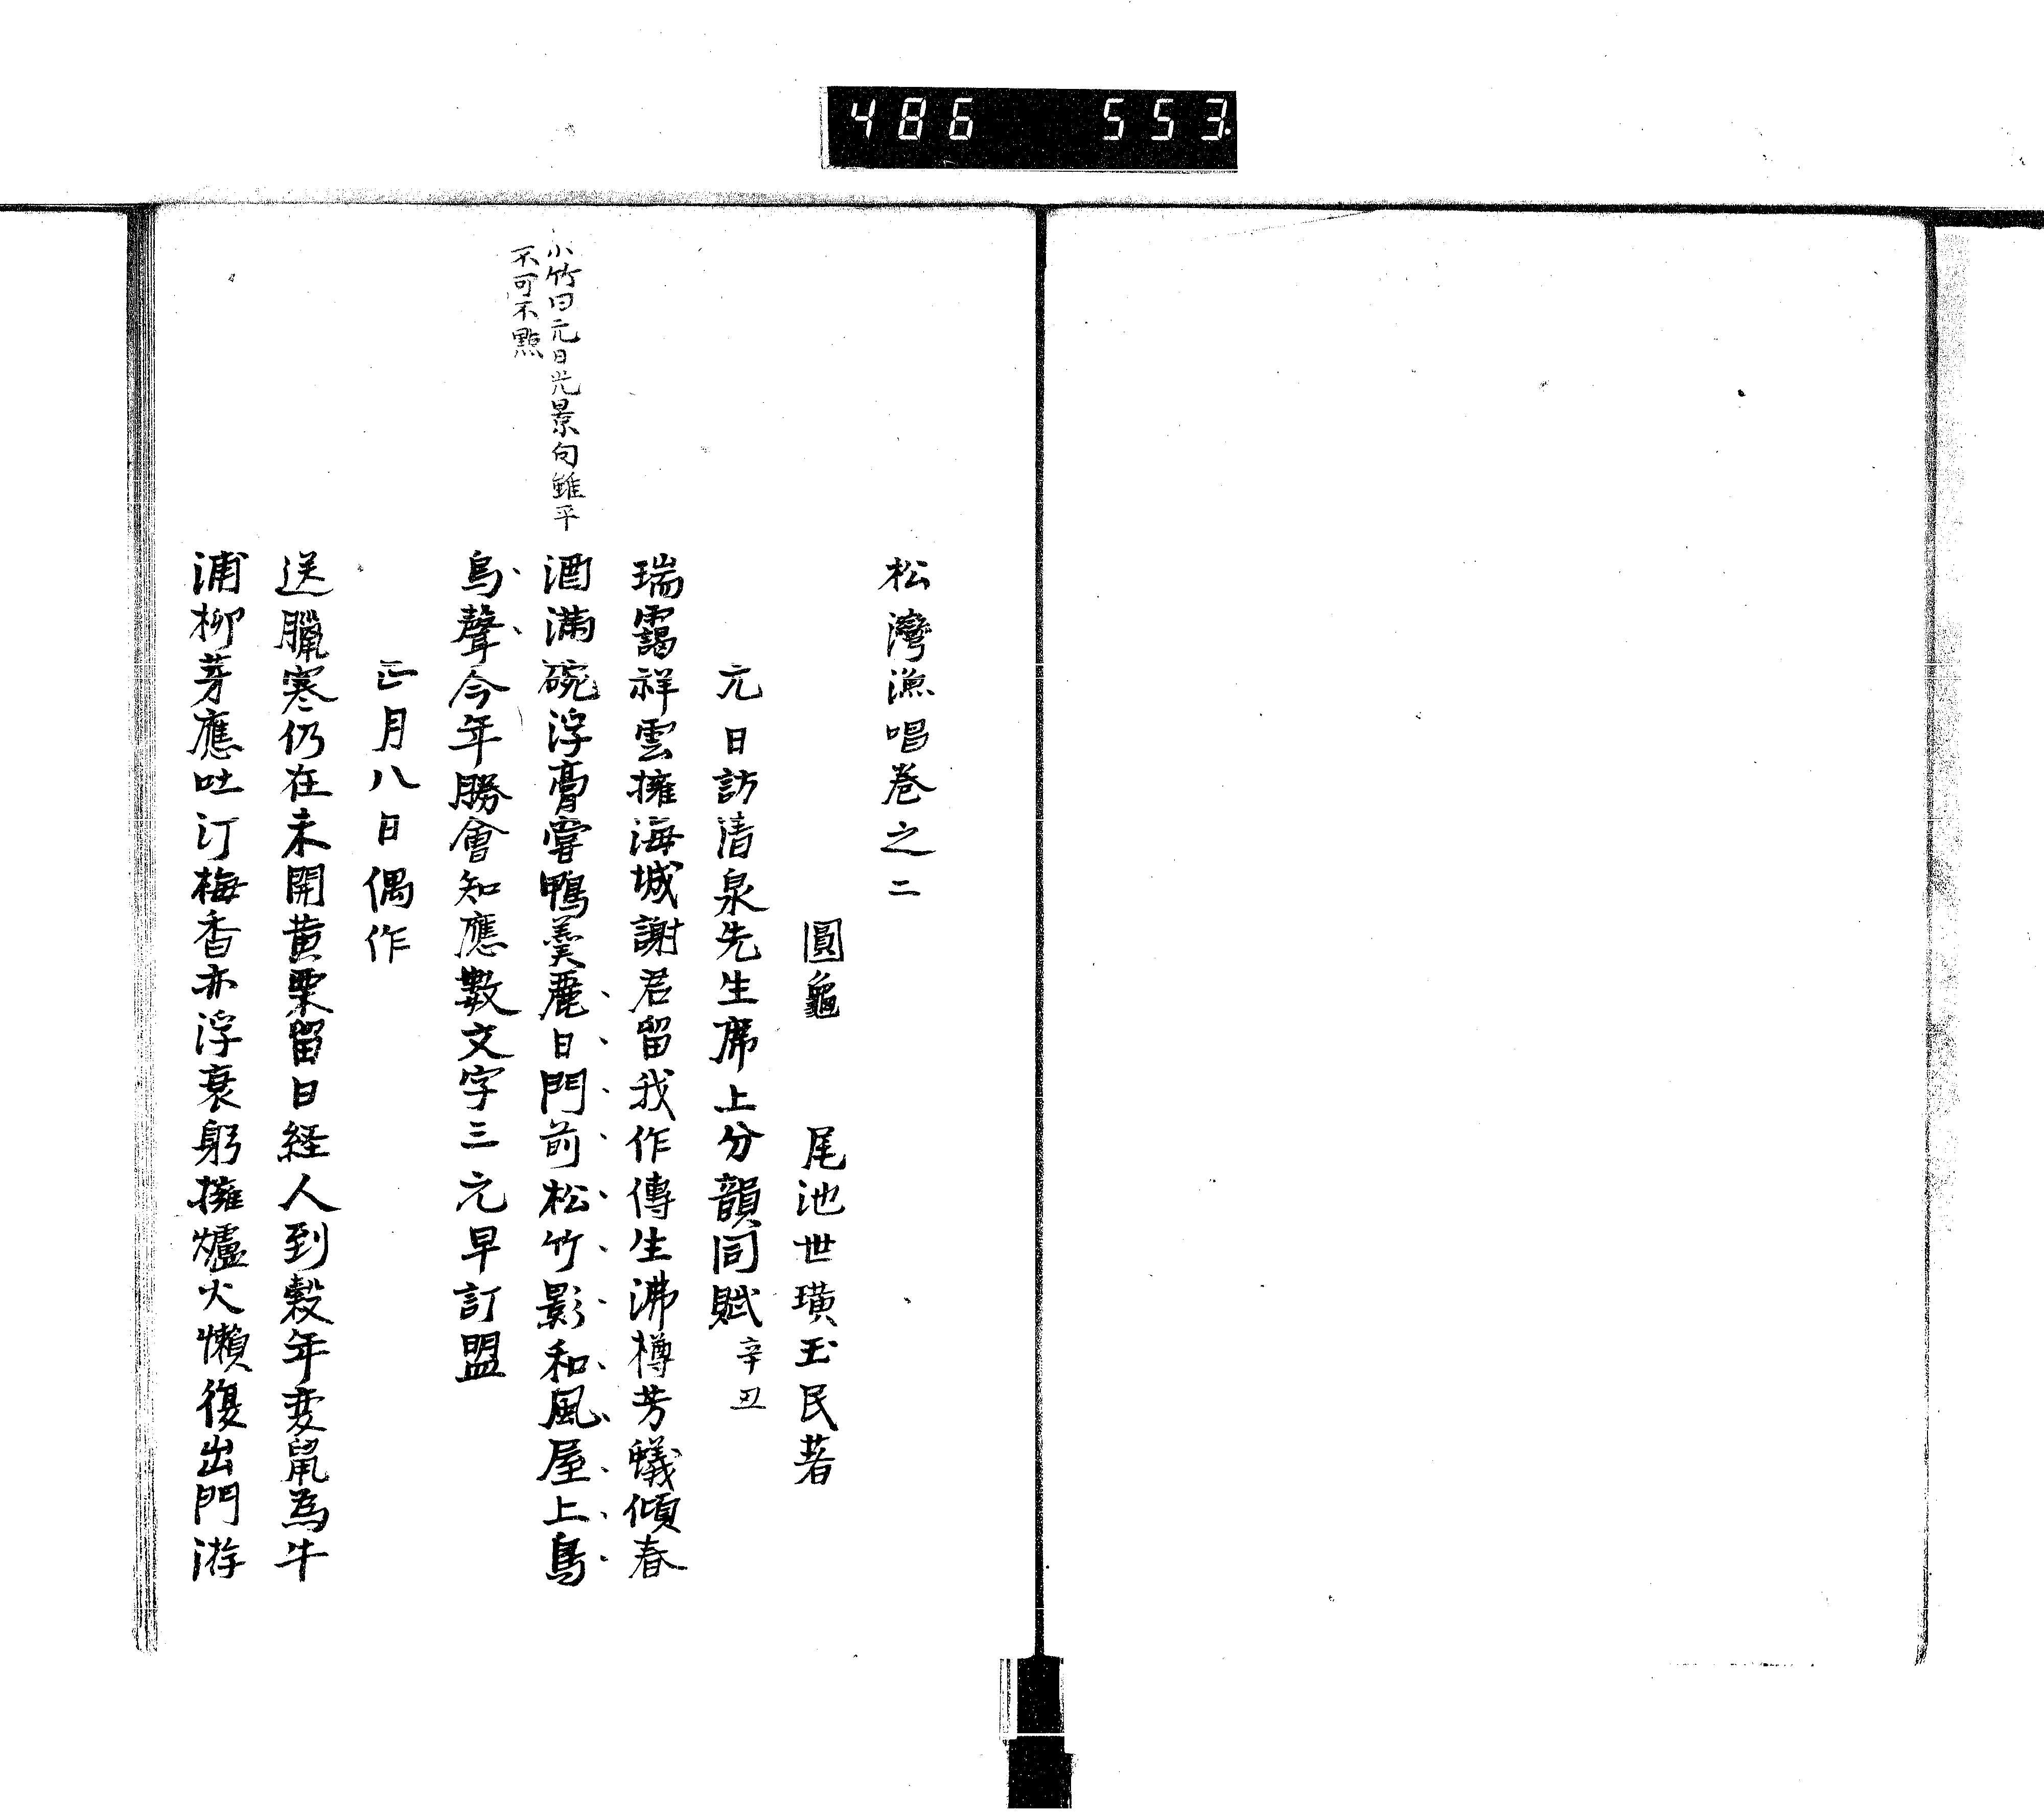 486 553.
松灣漁唱巻之二
圓龜 尾池世璜玉民著
元日訪清泉先生席上分韻同賦 辛丑
瑞靄祥雲擁海城謝君留我作傳生沸樽芳蟻傾春
酒滿碗浮膏嘗鴨羹麗日門前松竹影和風屋上鳥
烏聲今年勝會知應數文字三元早訂盟
小竹曰元日光景句雖平
不可不點
正月八日偶作
送臘寒仍在未開黄栗留日経人到穀年变鼠為牛
浦柳芽應吐汀梅香亦浮衰躬擁爐火懶復出門游